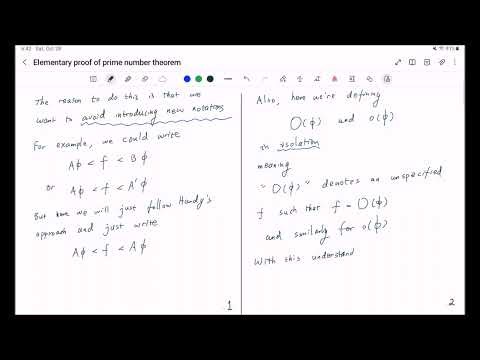 Sat, Oct 28
Elementary proof of prime number theorem
The reason to do this is that we
want to avoid introducing new notations
For example, we could write
Aϕ < f < Bϕ
or Aϕ < f < A'ϕ
But here we will just follow Hardy's
approach and just write
Aϕ < f < Aϕ
1
Also, here we're defining
O(ϕ) and o(ϕ)
in isolation
meaning
"O(ϕ)" denotes an unspecified
f such that f = O(ϕ)
and similarly for o(ϕ)
With this understand
2